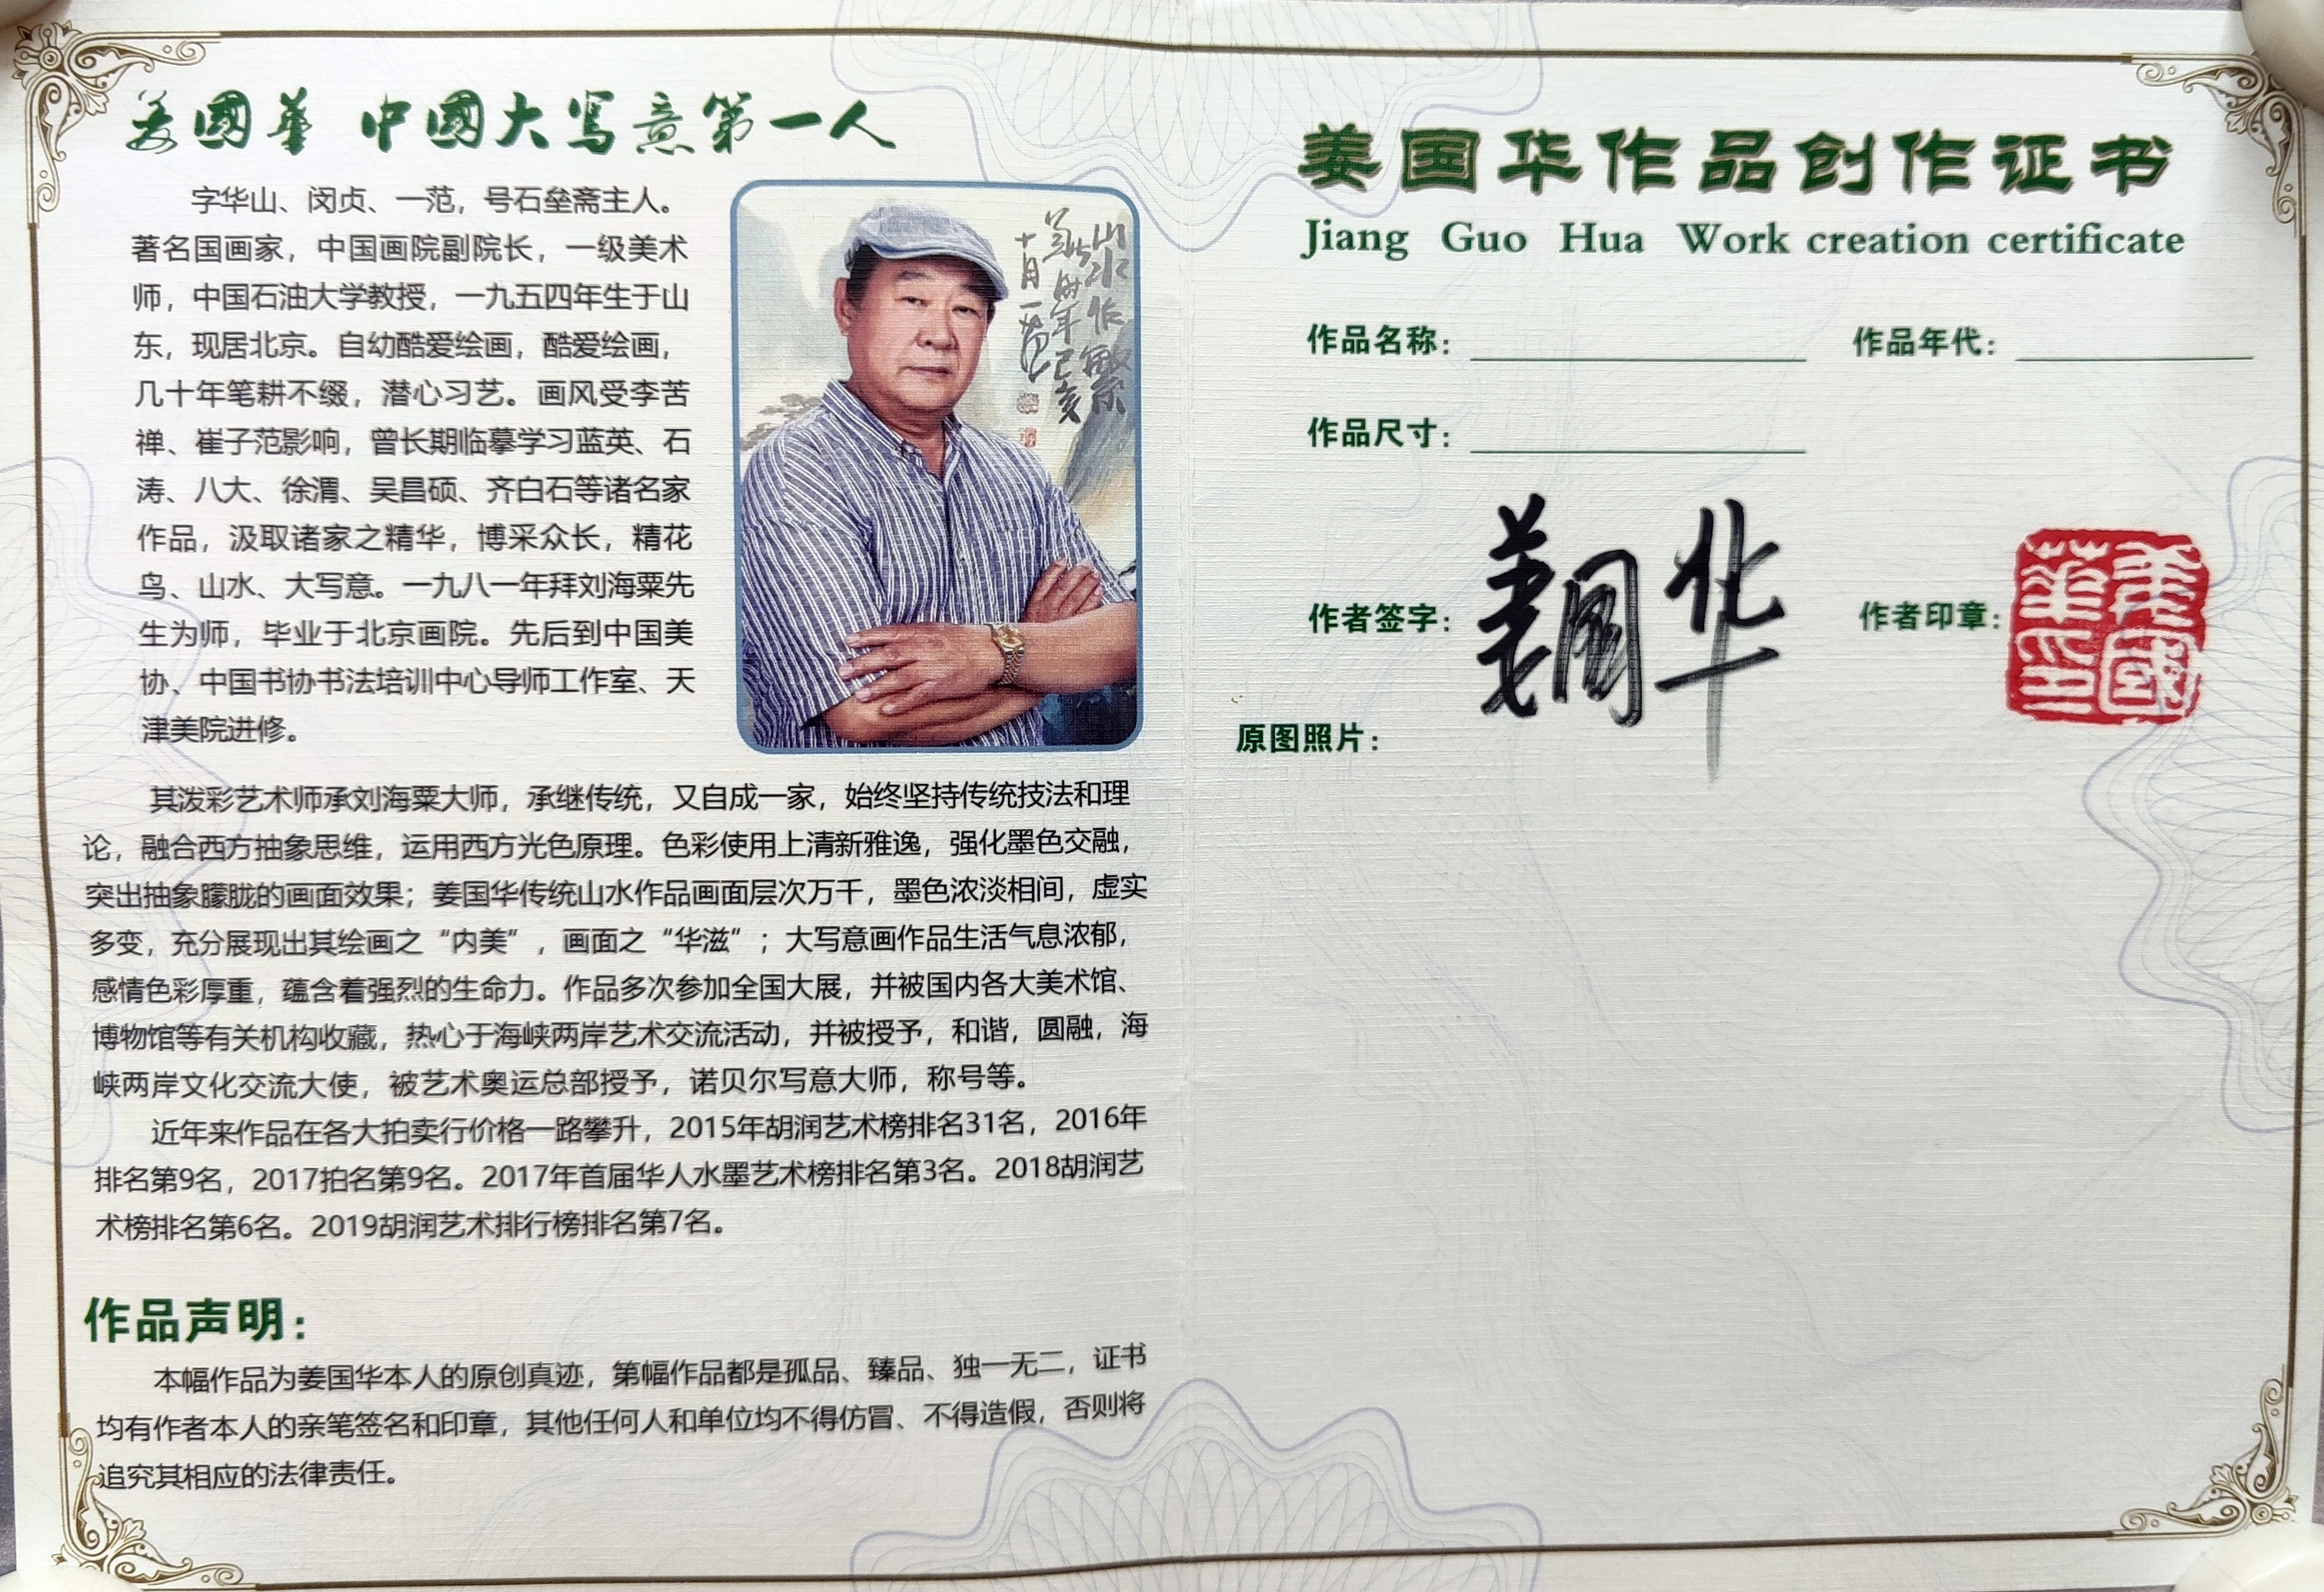 姜國華 中國大写意第一人
字华山、闵贞、一范，号石垒斋主人。
著名国画家，中国画院副院长，一级美术
师，中国石油大学教授，一九五四年生于山
东，现居北京。自幼酷爱绘画，酷爱绘画，
几十年笔耕不缀，潜心习艺。画风受李苦
禅、崔子范影响，曾长期临摹学习蓝英、石
涛、八大、徐渭、吴昌硕、齐白石等诸名家
作品，汲取诸家之精华，博采众长，精花
鸟、山水、大写意。一九八一年拜刘海粟先
生为师，毕业于北京画院。先后到中国美
协、中国书协书法培训中心导师工作室、天
津美院进修。
山水作
己亥
十月一范
其泼彩艺术师承刘海粟大师，承继传统，又自成一家，始终坚持传统技法和理
论，融合西方抽象思维，运用西方光色原理。色彩使用上清新雅逸，强化墨色交融，
突出抽象朦胧的画面效果；姜国华传统山水作品画面层次万千，墨色浓淡相间，虚实
多变，充分展现出其绘画之“内美”，画面之“华滋”；大写意画作品生活气息浓郁，
感情色彩厚重，蕴含着强烈的生命力。作品多次参加全国大展，并被国内各大美术馆、
博物馆等有关机构收藏，热心于海峡两岸艺术交流活动，并被授予，和谐，圆融，海
峡两岸文化交流大使，被艺术奥运总部授予，诺贝尔写意大师，称号等。
近年来作品在各大拍卖行价格一路攀升，2015年胡润艺术榜排名31名，2016年
排名第9名，2017拍名第9名。2017年首届华人水墨艺术榜排名第3名。2018胡润艺
术榜排名第6名。2019胡润艺术排行榜排名第7名。
作品声明：
本幅作品为姜国华本人的原创真迹，第幅作品都是孤品、臻品、独一无二，证书
均有作者本人的亲笔签名和印章，其他任何人和单位均不得仿冒、不得造假，否则将
追究其相应的法律责任。
姜国华作品创作证书
Jiang Guo Hua Work creation certificate
作品名称： 作品年代：
作品尺寸：
作者签字：姜国华 作者印章：姜國華印
原图照片：